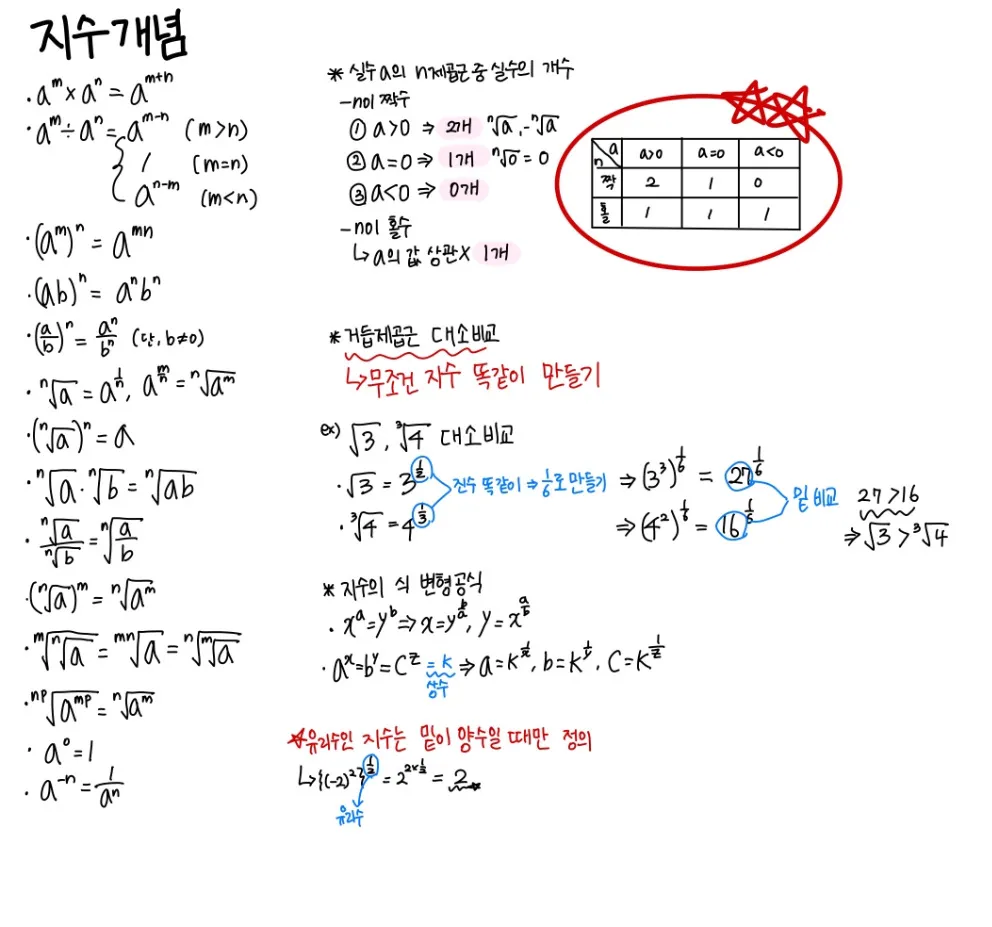 지수개념
· a^m × a^n = a^(m+n)
· a^m ÷ a^n = { a^(m-n) (m>n)
1 (m=n)
a^(n-m) (m<n)
· (a^m)^n = a^(mn)
· (ab)^n = a^n b^n
· (a/b)^n = a^n/b^n (단, b≠0)
· ⁿ√a = a^(1/n), a^(m/n) = ⁿ√(a^m)
· (ⁿ√a)^n = a
· ⁿ√a · ⁿ√b = ⁿ√(ab)
· ⁿ√a / ⁿ√b = ⁿ√(a/b)
· (ⁿ√a)^m = ⁿ√(a^m)
· ᵐ√(ⁿ√a) = ᵐⁿ√a = ⁿ√(ᵐ√a)
· ⁿᵖ√(a^(mp)) = ⁿ√(a^m)
· a^0 = 1
· a^(-n) = 1/a^n
* 실수 a의 n제곱근 중 실수의 개수
- n이 짝수
① a>0 ⇒ 2개 ⁿ√a, -ⁿ√a
② a=0 ⇒ 1개 ⁿ√0 = 0
③ a<0 ⇒ 0개
- n이 홀수
↳ a의 값 상관X 1개
n\a a>0 a=0 a<0
짝 2 1 0
홀 1 1 1
* 거듭제곱근 대소비교
↳ 무조건 지수 똑같이 만들기
ex) √3, ³√4 대소비교
· √3 = 3^(1/2) ⇒ (3^3)^(1/6) = 27^(1/6)
진수 똑같이 ⇒ 1/6로 만들기
· ³√4 = 4^(1/3) ⇒ (4^2)^(1/6) = 16^(1/6)
밑 비교
27 > 16
⇒ √3 > ³√4
* 지수의 식 변형공식
· x^a = y^b ⇒ x = y^(b/a), y = x^(a/b)
· a^x = b^y = c^z = k ⇒ a = k^(1/x), b = k^(1/y), c = k^(1/z)
상수
☆유리수인 지수는 밑이 양수일 때만 정의
↳ {(-2)^2}^(1/2) = 2^(2×1/2) = 2
유리수